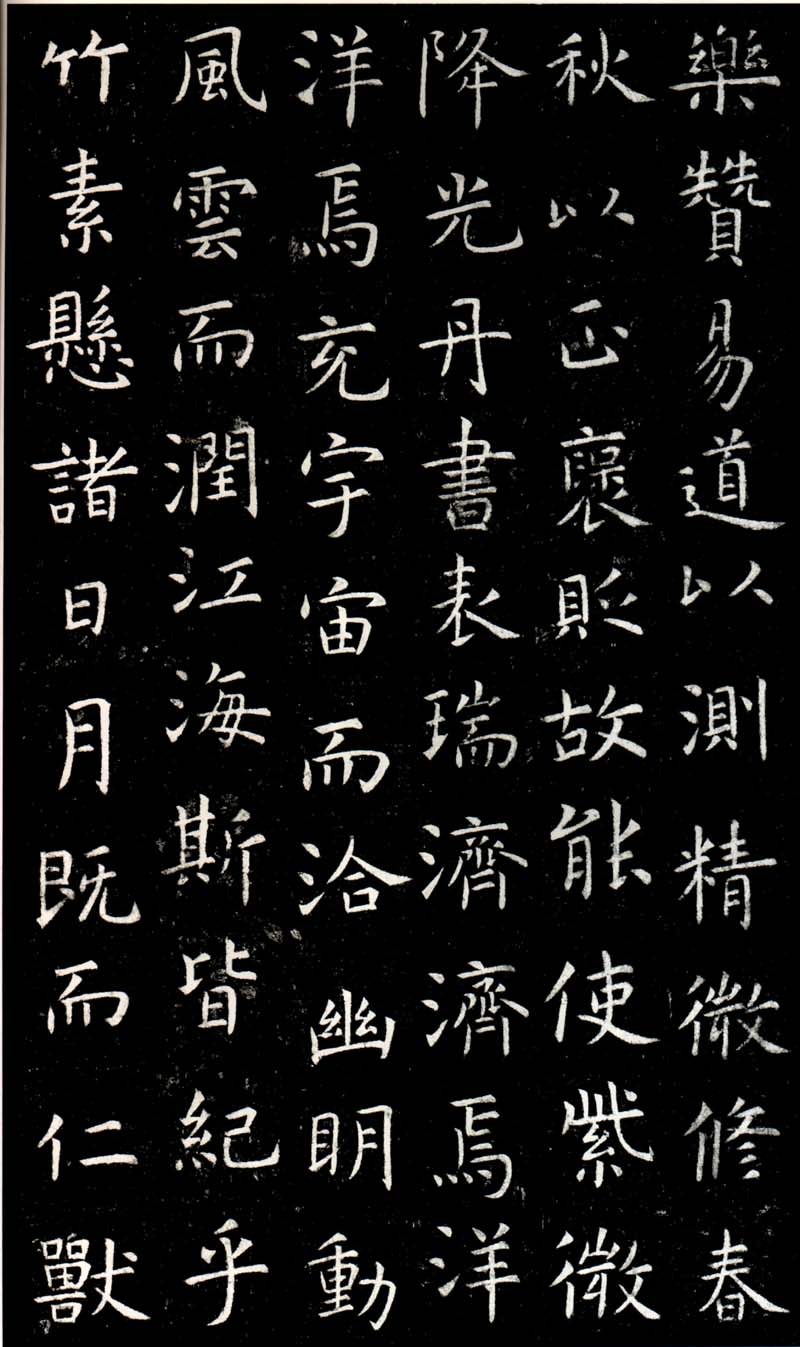 樂贊易道以測精微修春
秋以正襃貶故能使紫微
降光丹書表瑞濟濟焉洋
洋焉充宇宙而洽幽明動
風雲而潤江海斯皆紀乎
竹素懸諸日月既而仁獸